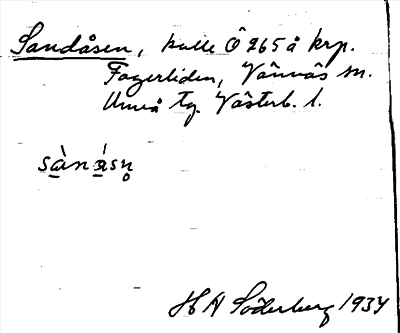 Sandåsen, kulle Ö 265 å krp.
Fagerliden, Vännäs sn.
Umeå tg. Västerb. l.
sà̲ná̲sn̥
H A Söderberg 1934